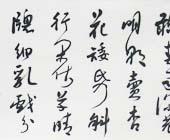 明朝賣杏
花矮紙斜
行閒作草晴
窗細乳戲分